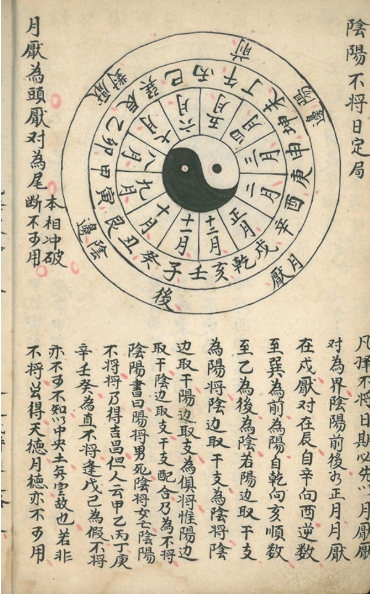 陰陽不将日定局
前
陽邊
月厭
後
陰邊
對厭
丙午丁未坤申庚酉辛戌乾亥壬子癸丑艮寅甲卯乙辰巽巳
五月
四月
三月
二月
正月
十二月
十一月
十月
九月
八月
七月
六月
月厭為頭厭对為尾
本相冲破
断不可用
凡擇不将日期必先以月厭厭
对為界陰陽前後如正月月厭
在戌厭对在辰自辛向酉逆数
至巽為前為陽自乾向亥順数
至乙為後為陰若陽邊取干支
為陽将陰邊取干支為陰将陰
邊取干陽邊取支為俱将惟陽邊
取干陰邊取支干支配合乃為不将
陰陽書曰陽将男死陰将女亡陰陽
不将将乃得吉昌但人云甲乙丙丁庚
辛壬癸為直不将逢戊己為假不将
亦不可不知以中央土無云故也若非
不将日得天徳月徳亦不可用